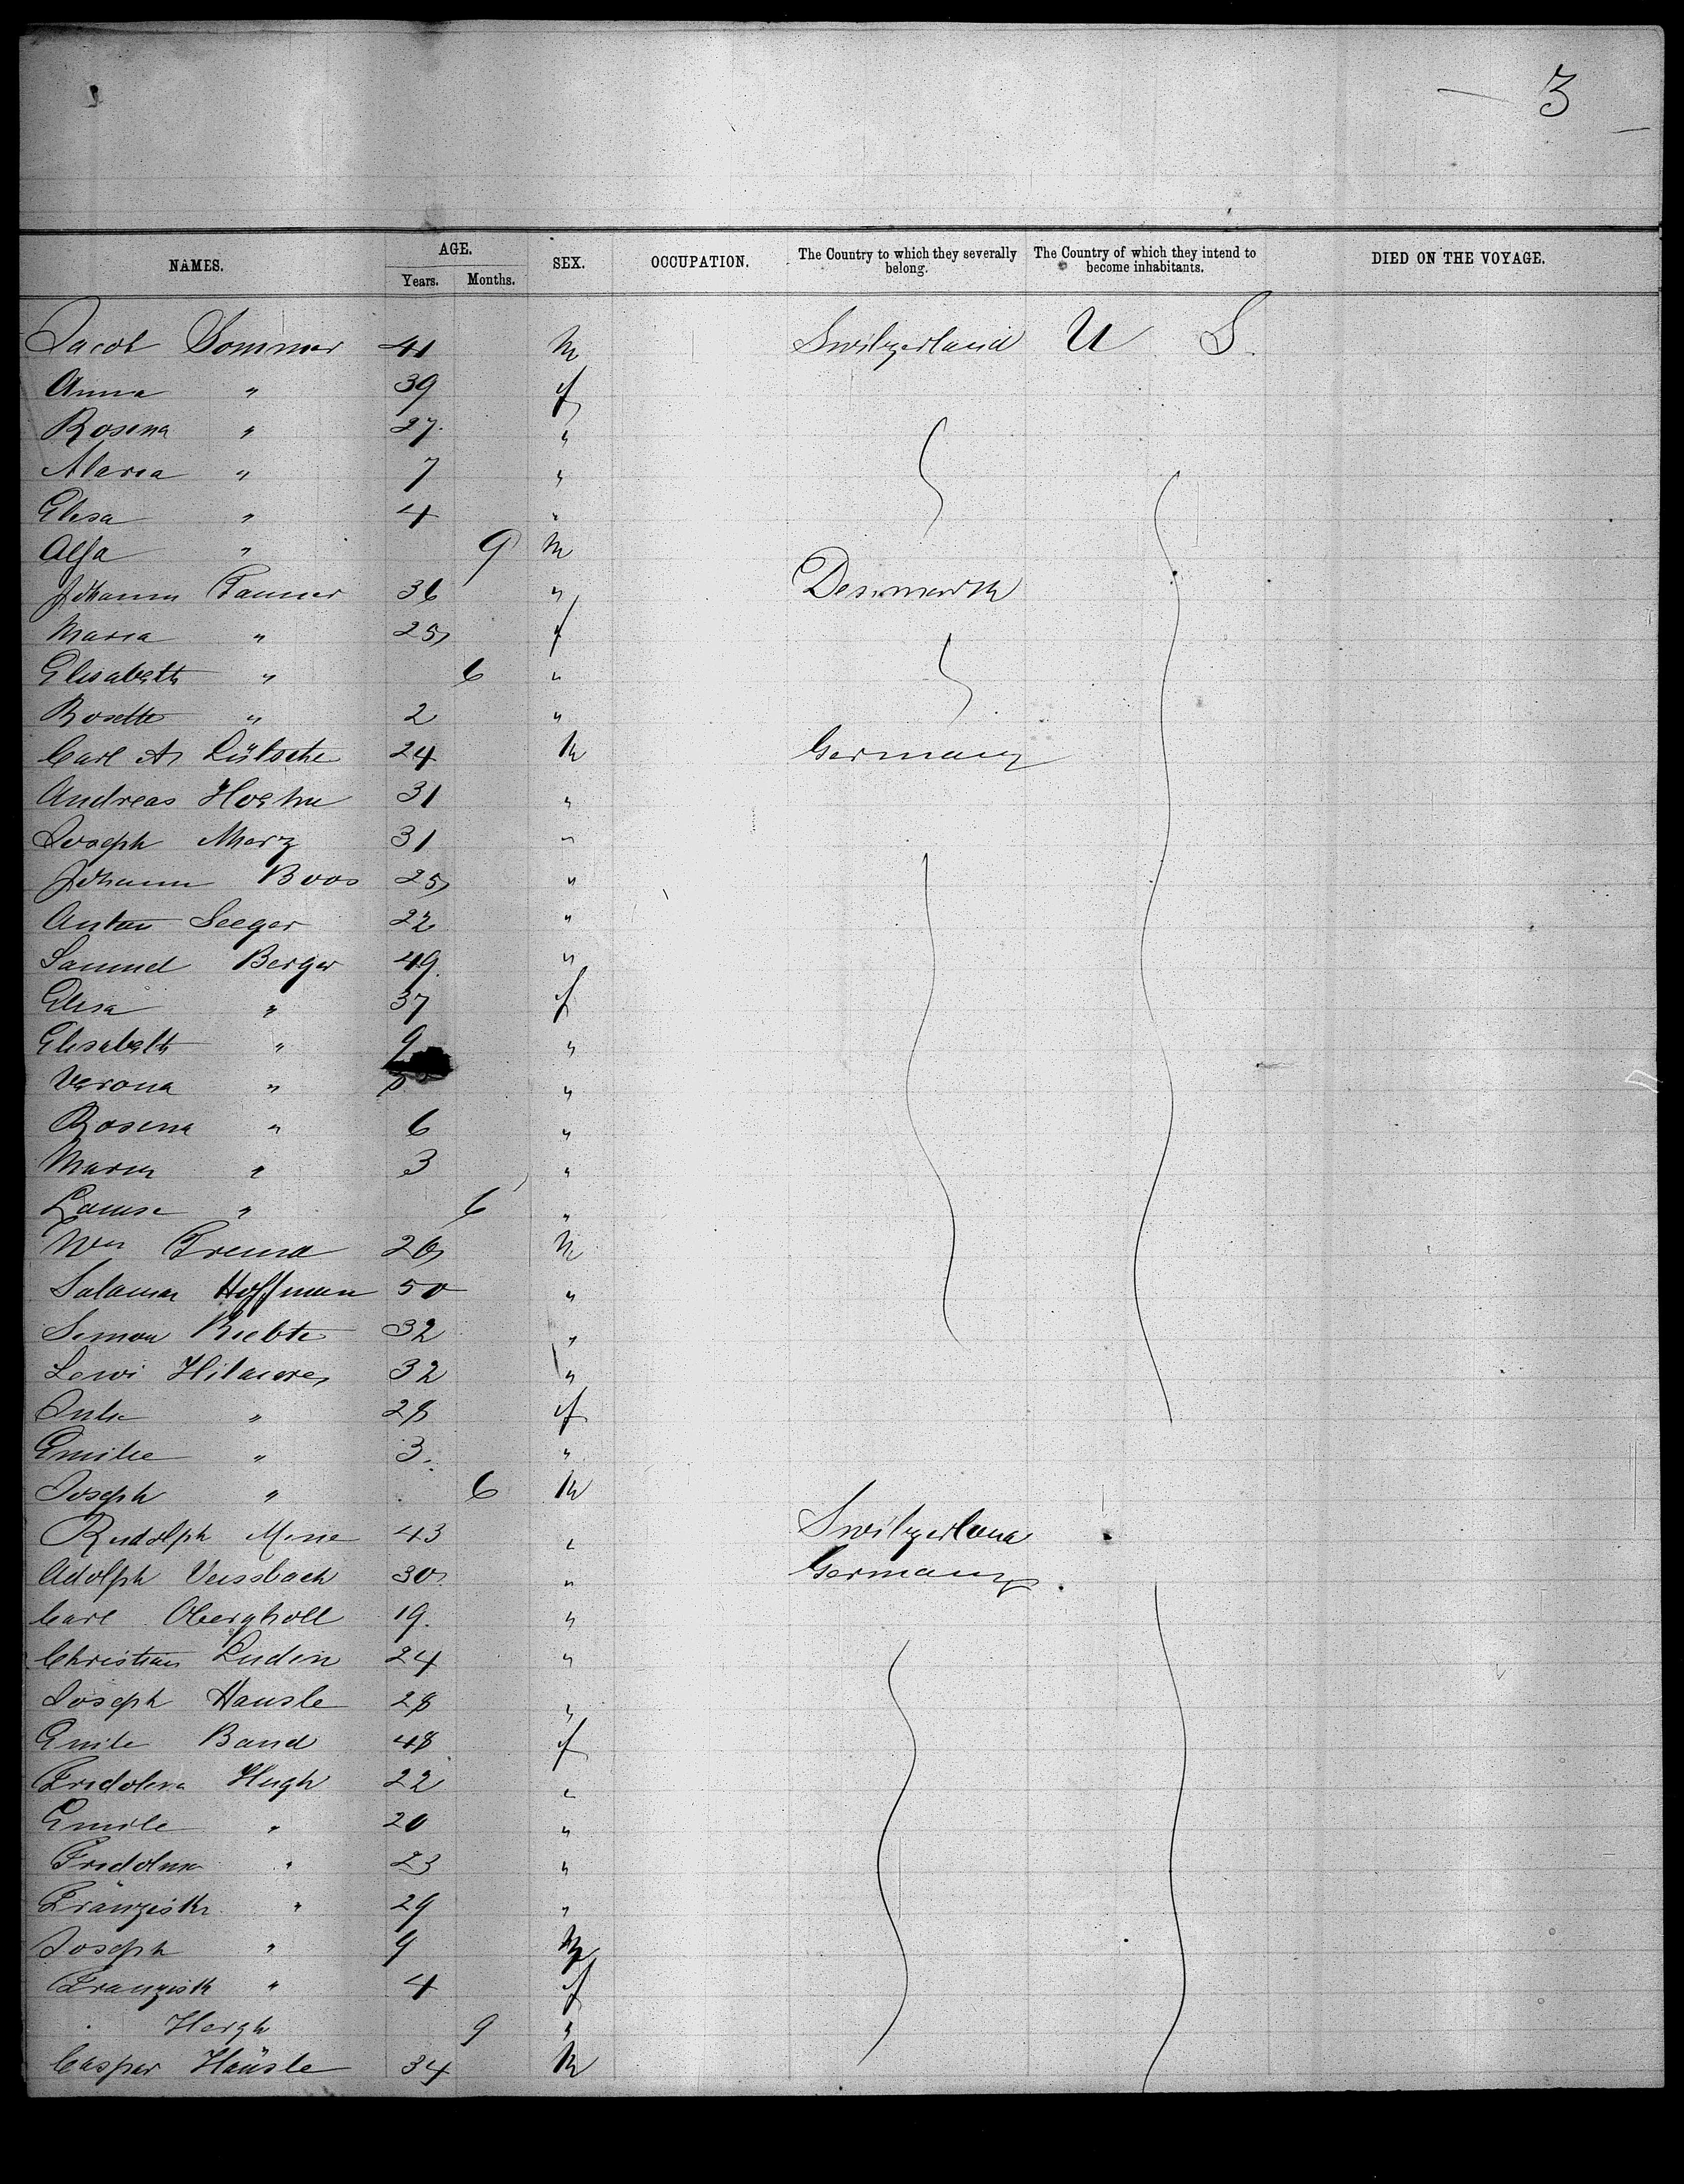 3
NAMES. AGE. Years. Months. SEX. OCCUPATION. The Country to which they severally belong. The Country of which they intend to become inhabitants. DIED ON THE VOYAGE.
Jacob Sommer 41 M Switzerland U S.
Anna " 39 f
Rosina " 27 "
Maria " 7 "
Elisa " 4 "
" 9 M
Johann Tanner 36 " Denmark
Maria " 25 f
Elisabeth " 6 "
Rosette " 2 "
Carl A 24 M Germany
Andreas Hoehn 31 "
Joseph Merz 31 "
Johann Boos 25 "
Anton Seeger 22 "
Samuel Berger 49 "
Elisa " 37 f
Elisabeth " 9 "
Verona " "
Rosina " 6 "
Maria " 3 "
Louise " 6 "
Wm M
Hoffmann 50 "
Simon 32 "
32 "
" 28 f
Emilie " 3 "
Joseph " 6 M
Rudolph 43 " Switzerland
Adolph 30 " Germany
Carl 19 "
Christian Ludin 24 "
Joseph Hausle 28 "
Emile Band 48 f
Fridolina Hugh 22 "
Emile " 20 "
Fridolina " 23 "
Franziska " 29 "
Joseph " 9 M
Franzisk " 4 f
9 "
Caspar Häusle 34 M